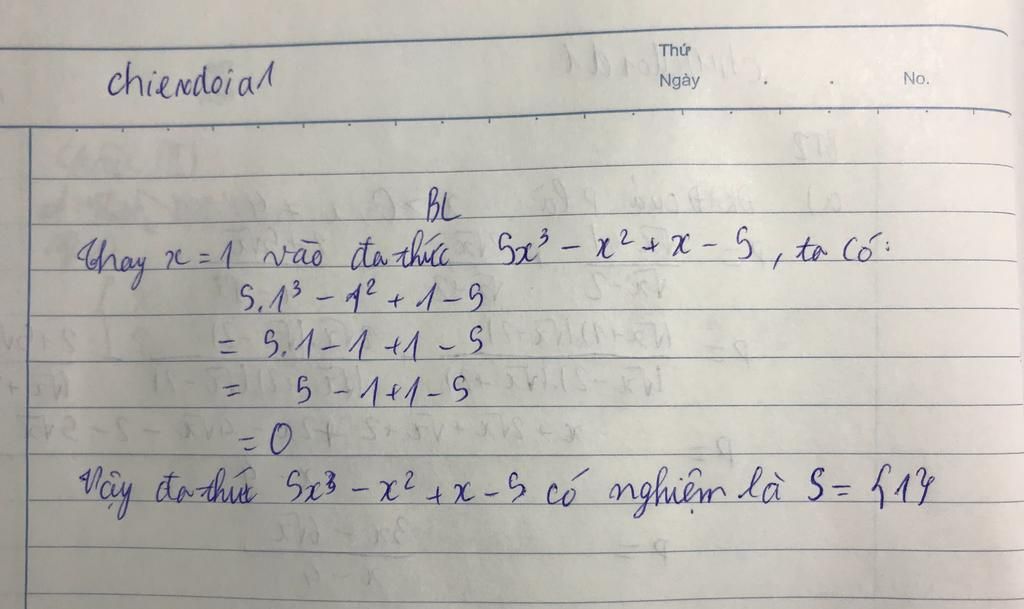 Thứ
chiendoia1
Ngày . . No.
BL
Thay x = 1 vào đa thức 5x³ - x² + x - 5, ta có:
5.1³ - 1² + 1 - 5
= 5.1 - 1 + 1 - 5
= 5 - 1 + 1 - 5
= 0
Vậy đa thức 5x³ - x² + x - 5 có nghiệm là S = {1}